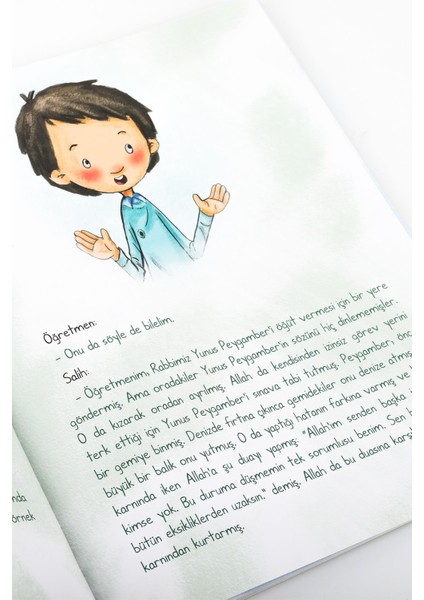 Öğretmen:
- Onu da söyle de bilelim.
Salih:
- Öğretmenim, Rabbimiz Yunus Peygamber'i öğüt vermesi için bir yere
göndermiş. Ama oradakiler Yunus Peygamber'in sözünü hiç dinlememişler.
O da kızarak oradan ayrılmış. Allah da kendisinden izinsiz görev yerini
terk ettiği için Yunus Peygamber'i sınava tabi tutmuş. Peygamber, önce
bir gemiye binmiş. Denizde fırtına çıkınca gemidekiler onu denize atmış
büyük bir balık onu yutmuş. O da yaptığı hatanın farkına varmış ve
karnında iken Allah'a şu duayı yapmış: "Allah'ım senden başka
kimse yok. Bu duruma düşmemin tek sorumlusu benim. Sen
bütün eksikliklerden uzaksın." demiş. Allah da bu duasına karşı
karnından kurtarmış.
nda
örnek